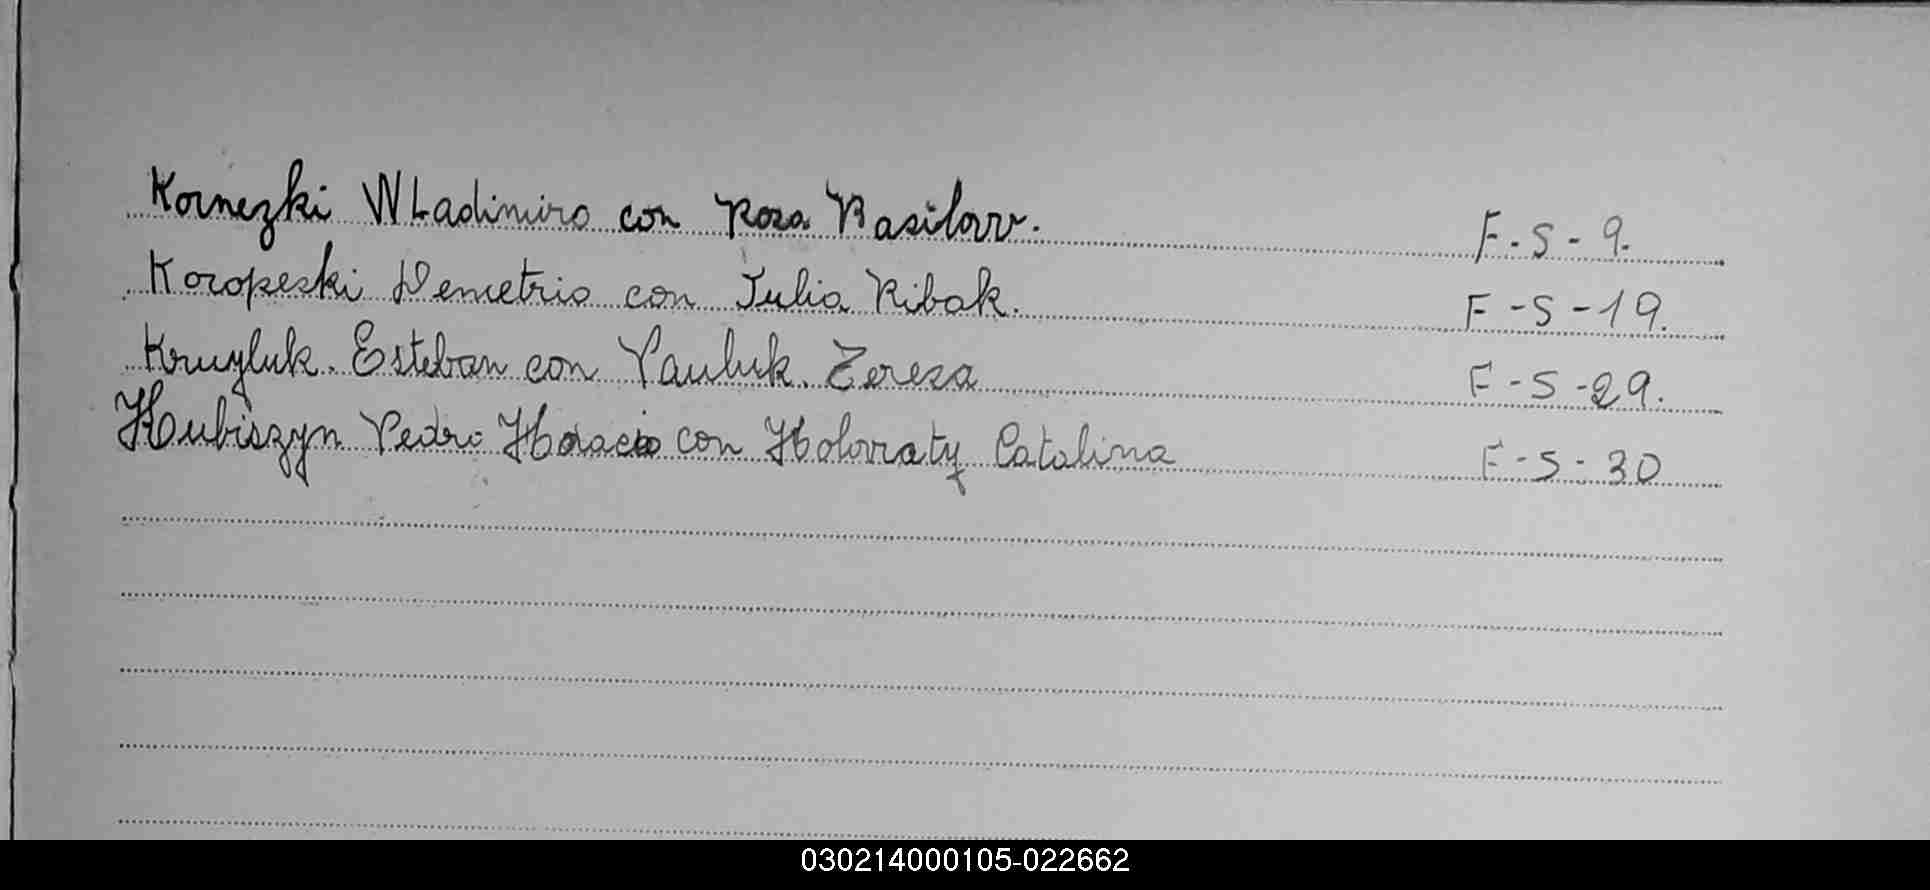 Kornezki Wladimiro con Rosa Basilow. F-S-9.
Koropeski Demetrio con Julia Ribak. F-S-19.
Kruyluk. Esteban con Pauluk. Tereza F-S-29.
Kubiszyn Pedro Horacio con Holovaty Catalina F-S-30
030214000105-022662